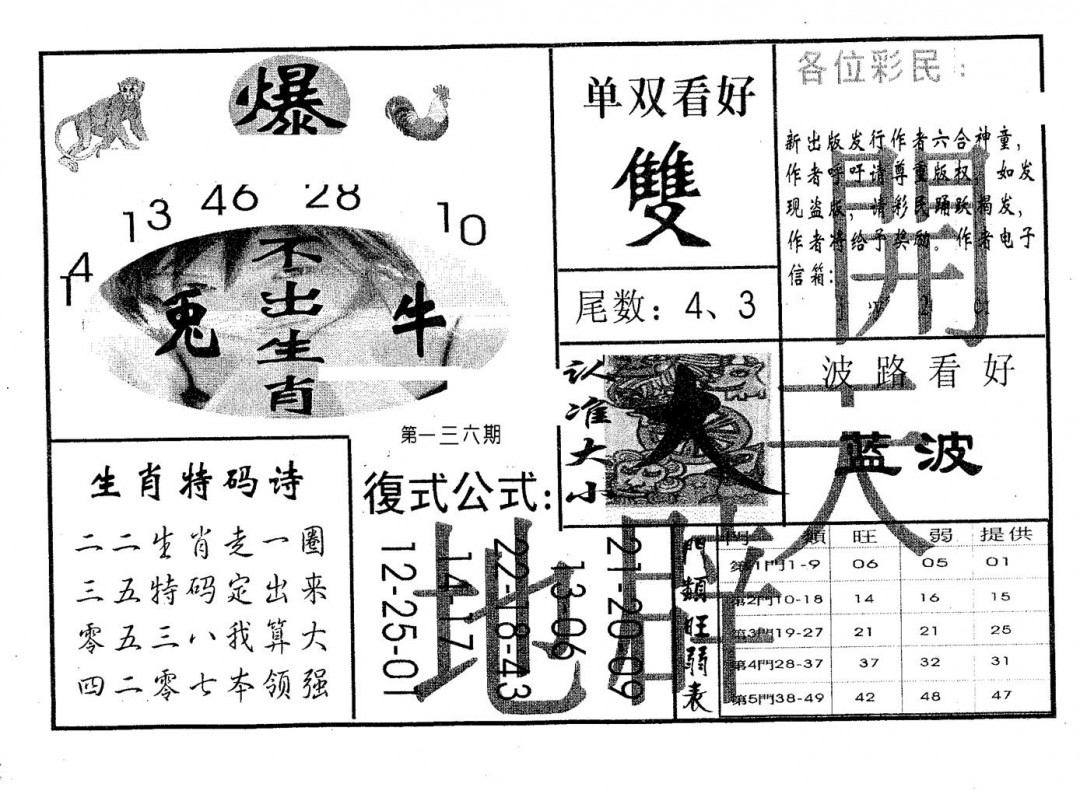 爆
14
13
46
28
10
兔
不出生肖
牛
第一三六期
单双看好
雙
尾数：4、3
各位彩民：
新出版发行作者六合神童，
作者呼吁请尊重版权，如发
现盗版，请彩民踊跃揭发，
作者将给予奖励。作者电子
信箱：
開
认准大小
大
波路看好
蓝波
天
生肖特码诗
二二生肖走一圈
三五特码定出来
零五三八我算大
四二零七本领强
復式公式：
12-25-01
14-17
22-18-43
13-06
21-20-09
地
門類旺弱表
門類 旺 弱 提供
第1門1-9 06 05 01
第2門10-18 14 16 15
第3門19-27 21 21 25
第4門28-37 37 32 31
第5門38-49 42 48 47